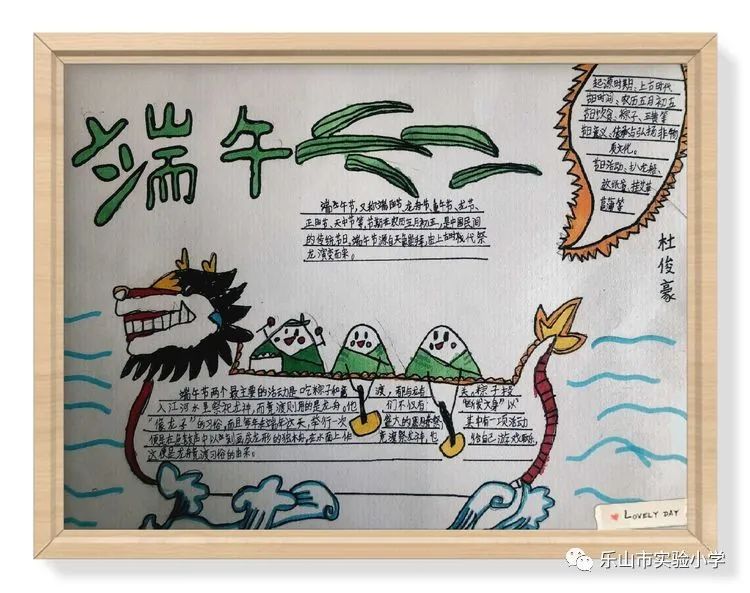 端午
起源时期、上古时代
节日时间、农历五月初五
节日饮食、粽子、五黄等
节日意义、传承与弘扬非物
质文化。
节日活动、扒龙船、
放纸鸢、挂艾草
菖蒲等
杜俊豪
端午节,又称端阳节、龙舟节、重午节、龙节、
正阳节、天中节等,节期在农历五月初五,是中国民间
的传统节日。端午节源自天象崇拜,由上古时代祭
龙演变而来。
端午节两个最主要的活动是吃粽子和竞渡,都与龙
去,粽子投
入江河水里祭祀龙神,而竞渡则用的是龙舟。他们不仅有
以
龙子的习俗,而且每年在端午这天,举行一次
其中有一项活动
便是在鼓声中以 龙形的独木舟,在水面上作竞渡
给自己游戏取乐
这便是龙舟竞渡习俗的由来。
LOVELY DAY
乐山市实验小学